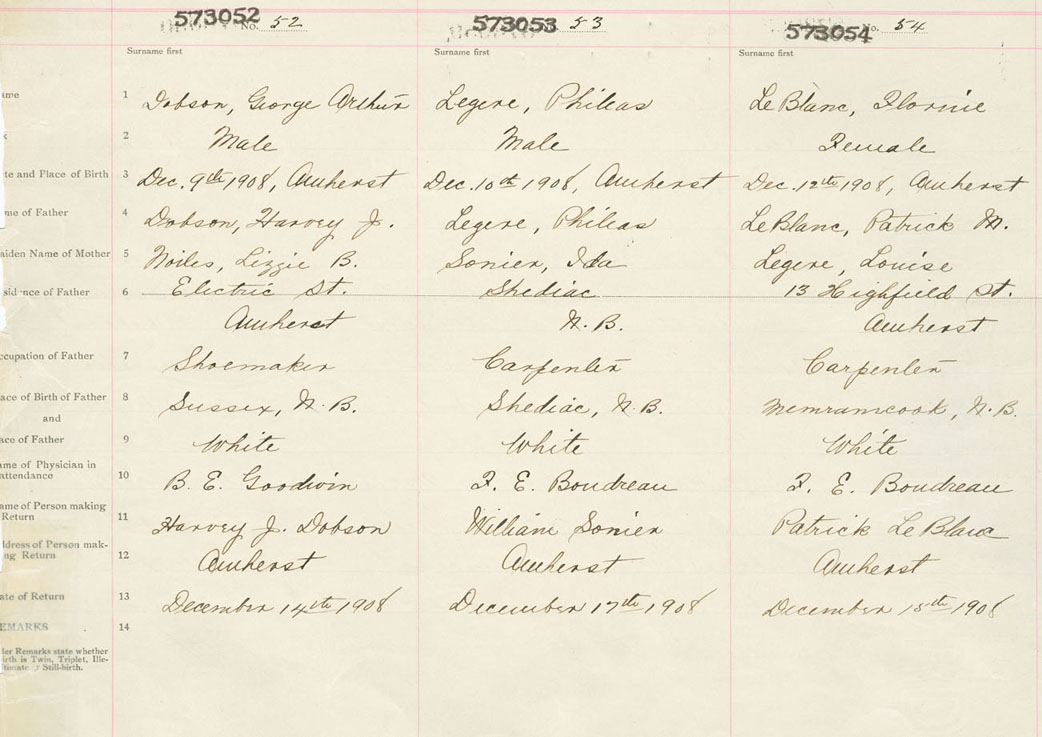 573052 No. 52 573053 53 573054 No. 54
Surname first Surname first Surname first
ame 1 Dobson, George Arthur Legere, Phileas LeBlanc, Flornie
x 2 Male Male Female
te and Place of Birth 3 Dec. 9th 1908, Amherst Dec. 10th 1908, Amherst Dec. 12th 1908, Amherst
me of Father 4 Dobson, Harvey J. Legere, Phileas LeBlanc, Patrick M.
aiden Name of Mother 5 Noiles, Lizzie B. Sonier, Ida Legere, Louise
sidence of Father 6 Electric St. Shediac 13 Highfield St.
Amherst N.B. Amherst
ccupation of Father 7 Shoemaker Carpenter Carpenter
ace of Birth of Father 8 Sussex, N.B. Shediac, N.B. Memramcook, N.B.
and
ace of Father 9 White White White
ame of Physician in
attendance 10 B. E. Goodwin F. E. Boudreau F. E. Boudreau
ame of Person making
Return 11 Harvey J. Dobson William Sonier Patrick LeBlanc
ddress of Person mak-
ng Return 12 Amherst Amherst Amherst
ate of Return 13 December 14th 1908 December 17th 1908 December 15th 1908
EMARKS 14
der Remarks state whether
irth is Twin, Triplet, Ille-
timate or Still-birth.